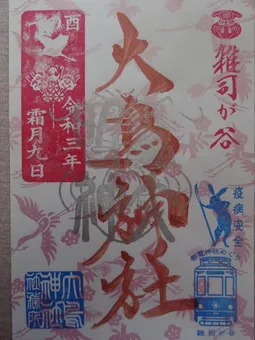 雑司が谷
疫病安全
大鳥神社
酉
令和三年
霜月九日
大鳥
神社
社務所